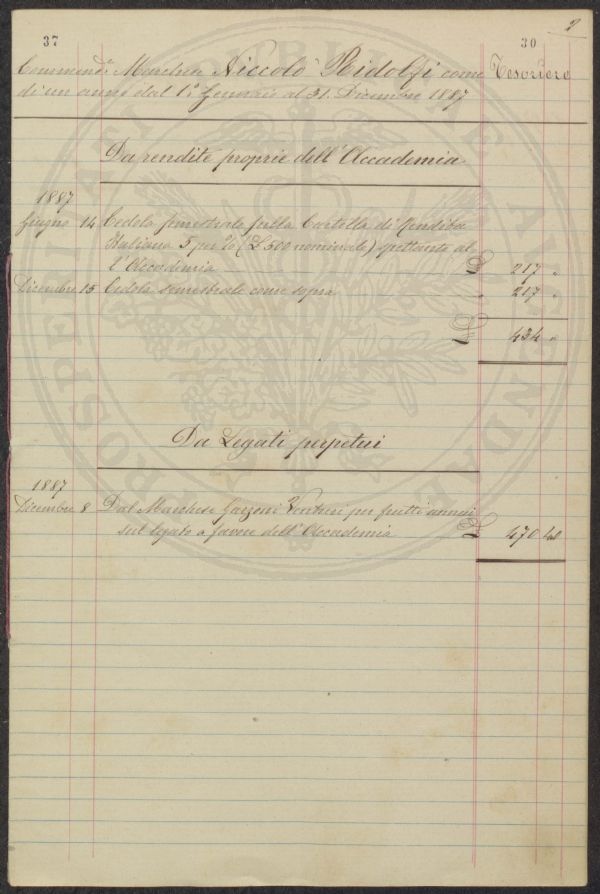 2
37 30
Commend.e Marchese Niccolò Ridolfi come Tesoriere
di un anno dal 1º Gennaio al 31. Dicembre 1887
Da rendite proprie dell'Accademia
1887
Giugno 14 Cedola semestrale sulla Cartella di Rendita
Italiana 5 per % (£ 500 nominale) spettante al
l'Accademia £ 217 "
Dicembre 15 Cedola semestrale come sopra " 217 "
£ 434 "
Da Legati perpetui
1887
Dicembre 8 Dal Marchese Garzoni Venturi per frutti annui
sul legato a favore dell'Accademia £ 470
PROSPERITATI PUBLICAE AUGENDAE